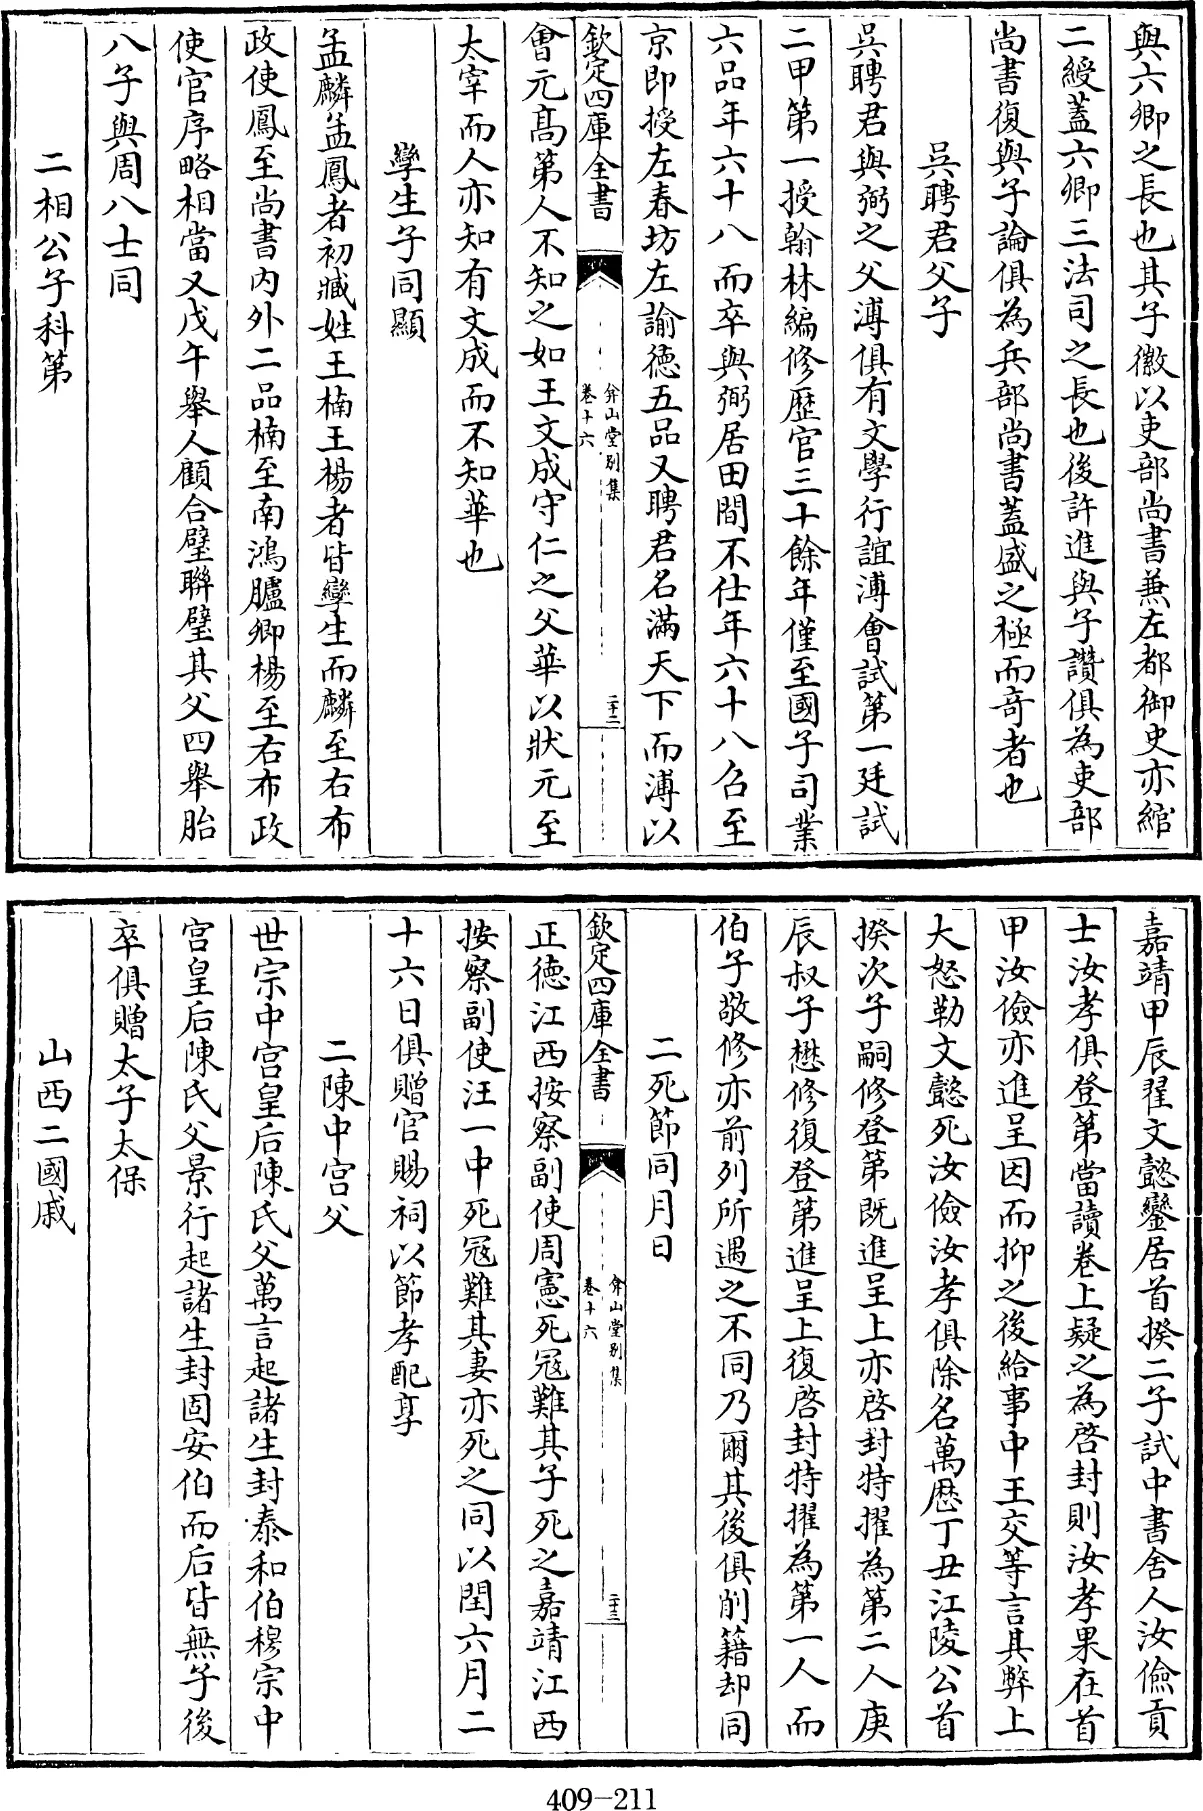 與六卿之長也其子徽以吏部尚書兼左都御史亦綰
二綬蓋六卿三法司之長也後許進與子讚俱為吏部
尚書復與子論俱為兵部尚書蓋盛之極而竒者也
吳聘君父子
吳聘君與弼之父溥俱有文學行誼溥會試第一廷試
二甲第一授翰林編修歴官三十餘年僅至國子司業
六品年六十八而卒與弼居田間不仕年六十八召至
京即授左春坊左諭徳五品又聘君名滿天下而溥以
欽定四庫全書
弇山堂别集
卷十六
二十二
會元髙第人不知之如王文成守仁之父華以狀元至
太宰而人亦知有文成而不知華也
孿生子同顯
孟麟孟鳳者初臧姓王楠王楊者皆孿生而麟至右布
政使鳳至尚書内外二品楠至南鴻臚卿楊至右布政
使官序略相當又戊午舉人顧合璧聯璧其父四舉胎
八子與周八士同
二相公子科第
嘉靖甲辰翟文懿鑾居首揆二子試中書舍人汝儉貢
士汝孝俱登第當讀卷上疑之為啓封則汝孝果在首
甲汝儉亦進呈因而抑之後給事中王交等言其弊上
大怒勒文懿死汝儉汝孝俱除名萬厯丁丑江陵公首
揆次子嗣修登第既進呈上亦啓封特擢為第二人庚
辰叔子懋修復登第進呈上復啓封特擢為第一人而
伯子敬修亦前列所遇之不同乃爾其後俱削籍却同
二死節同月日
欽定四庫全書
弇山堂别集
卷十六
二十三
正徳江西按察副使周憲死冦難其子死之嘉靖江西
按察副使汪一中死冦難其妻亦死之同以閏六月二
十六日俱贈官賜祠以節孝配享
二陳中宫父
世宗中宫皇后陳氏父萬言起諸生封泰和伯穆宗中
宫皇后陳氏父景行起諸生封固安伯而后皆無子後
卒俱贈太子太保
山西二國戚
409-211